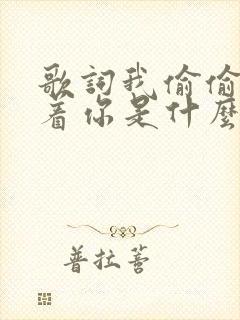 歌詞我偷偷
着你是什麼
普拉薈